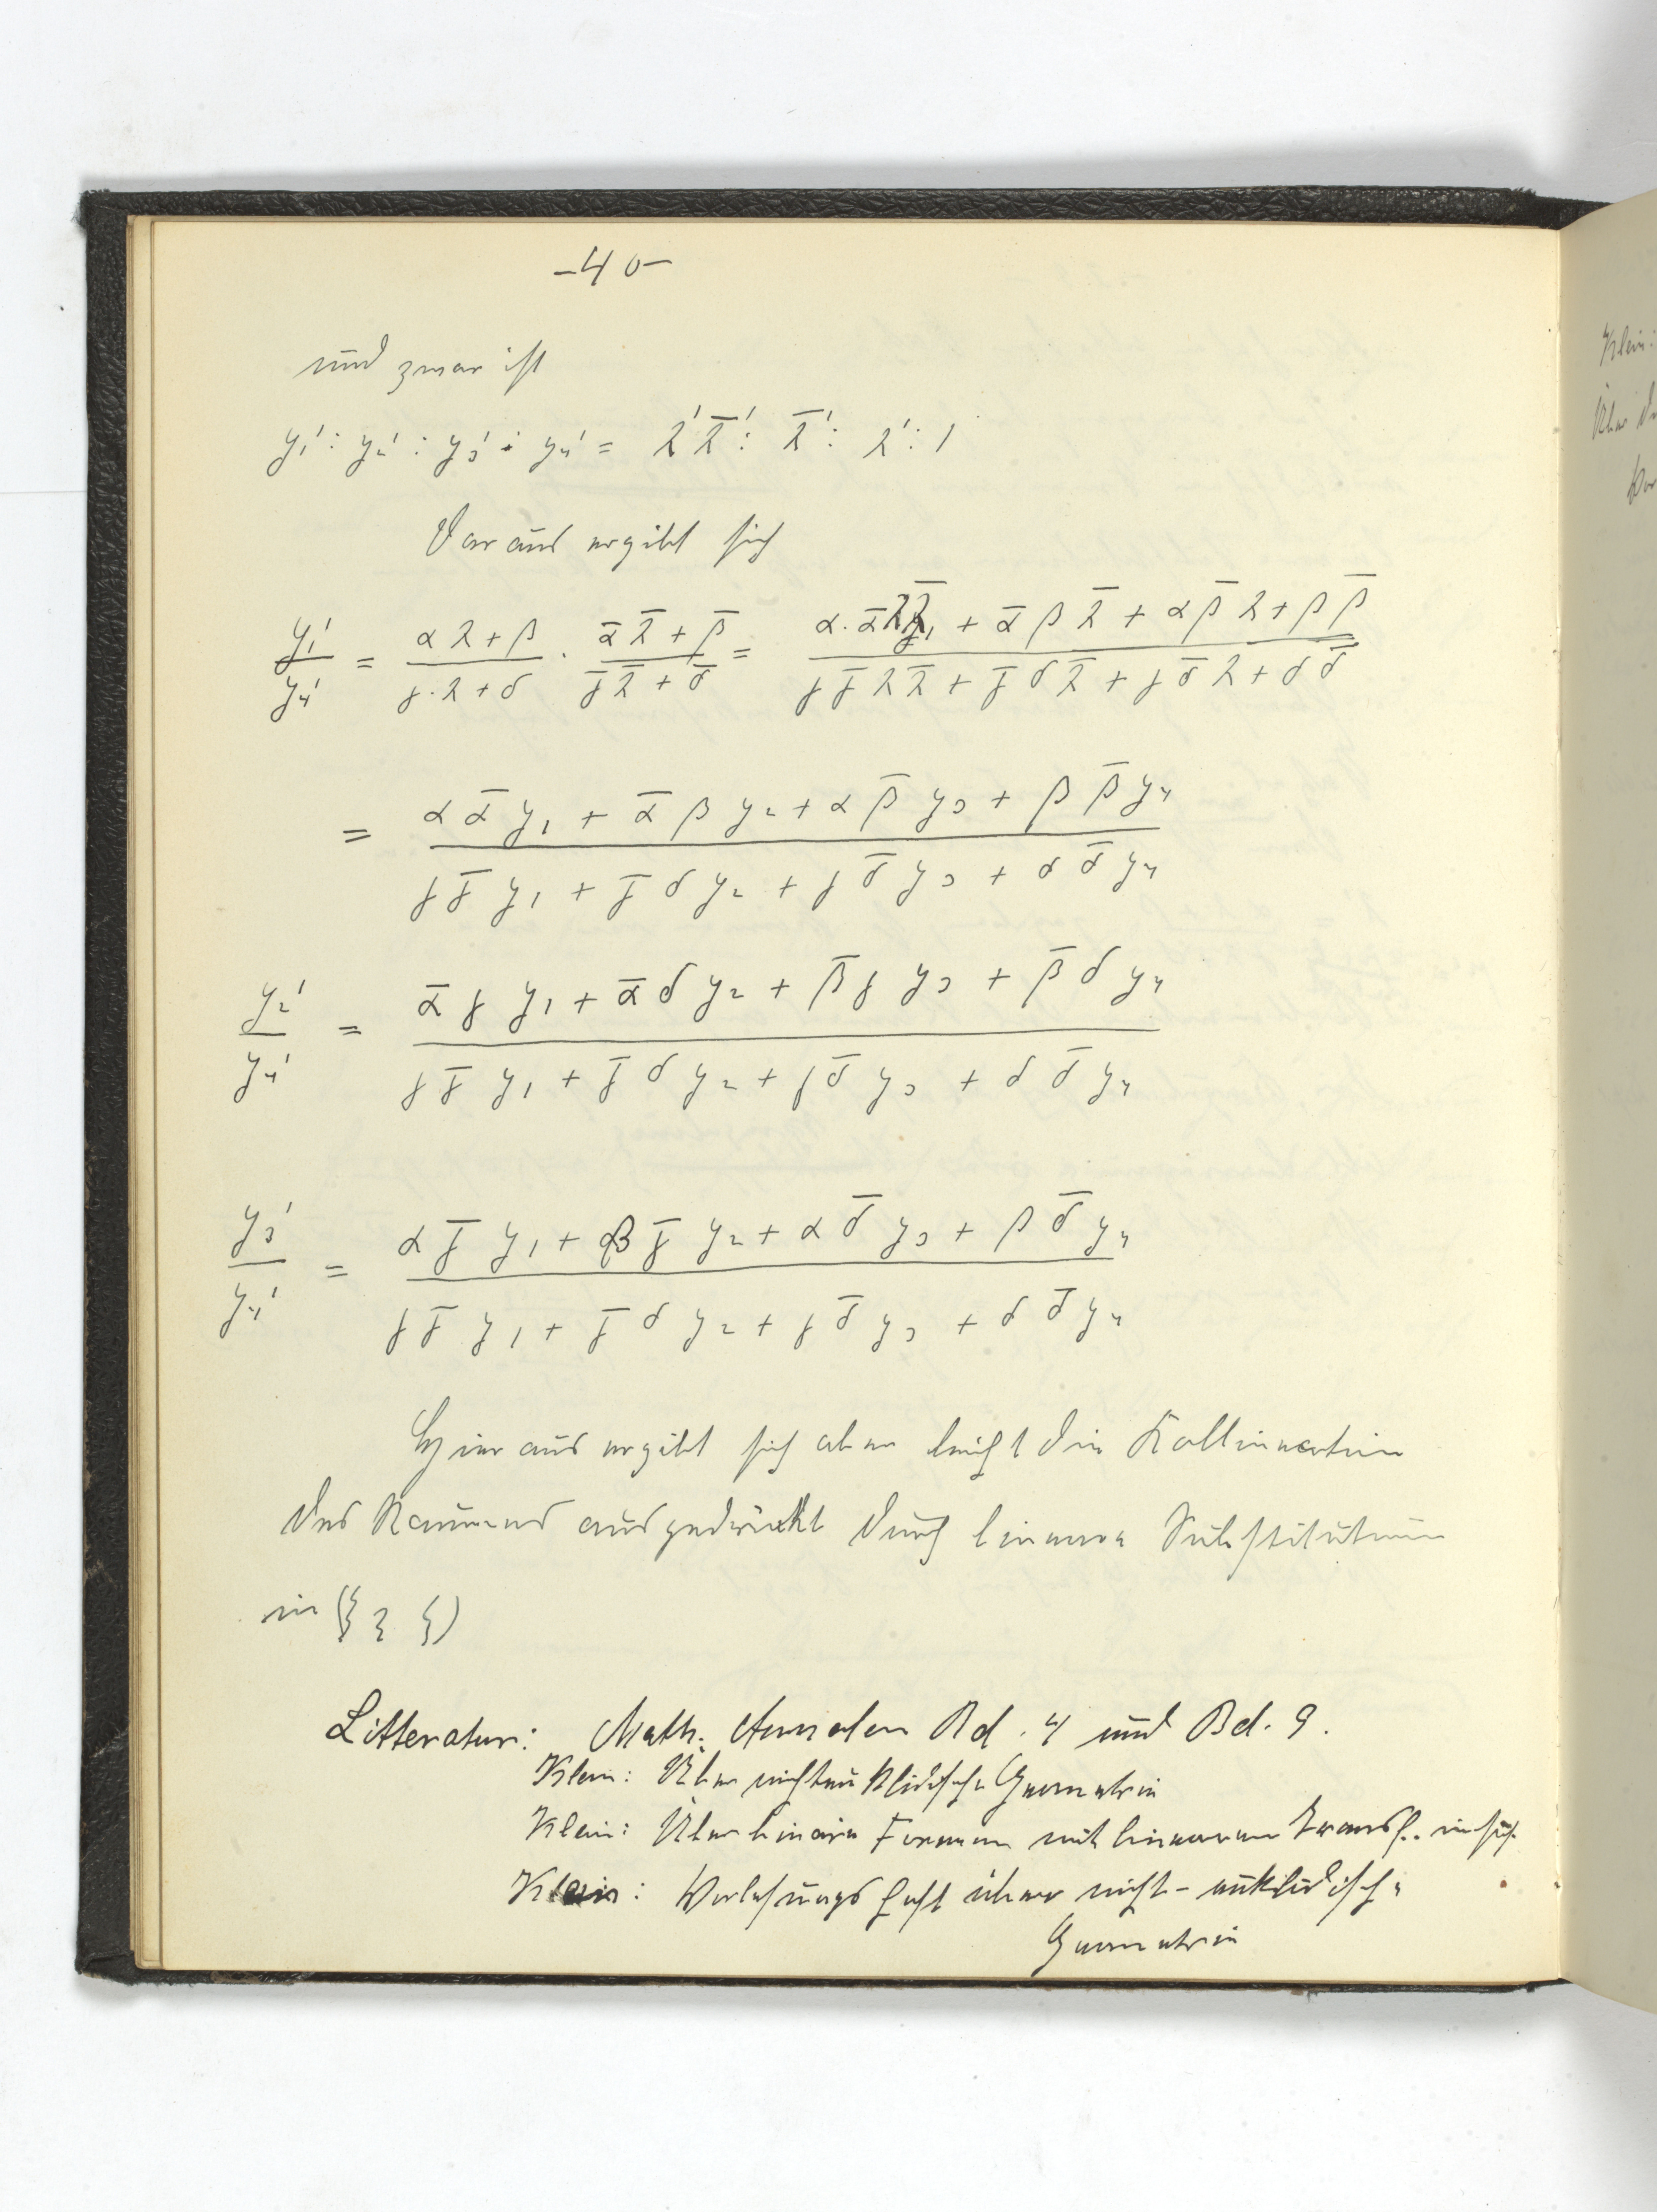 -40-
und zwar ist
y₁' : y₂' : y₃' : y₄' = λ'λ̄' : λ̄' : λ' : 1
Daraus ergibt sich
y₁'/y₄' = (αλ+β)/(γ·λ+δ) · (ᾱλ̄+β̄)/(γ̄λ̄+δ̄) = (α·ᾱλλ̄ + ᾱβλ̄ + αβ̄λ + ββ̄)/(γγ̄λλ̄ + γ̄δλ̄ + γδ̄λ + δδ̄)
= (αᾱy₁ + ᾱβy₂ + αβ̄y₃ + ββ̄y₄)/(γγ̄y₁ + γ̄δy₂ + γδ̄y₃ + δδ̄y₄)
y₂'/y₄' = (ᾱγy₁ + ᾱδy₂ + β̄γy₃ + β̄δy₄)/(γγ̄y₁ + γ̄δy₂ + γδ̄y₃ + δδ̄y₄)
y₃'/y₄' = (αγ̄y₁ + βγ̄y₂ + αδ̄y₃ + βδ̄y₄)/(γγ̄y₁ + γ̄δy₂ + γδ̄y₃ + δδ̄y₄)
Hieraus ergibt sich aber leicht die Kollineation
des Raumes ausgedrückt durch lineare Substitution
in (ξ η ζ)
Litteratur: Math. Annalen Bd. 4 und Bd. 9.
Klein: Über nichteuklidische Geometrie
Klein: Über binäre Formen mit linearen Transf. in sich.
Klein: Vorlesungsheft über nicht-euklidische
Geometrie
Klein:
Über
Vor